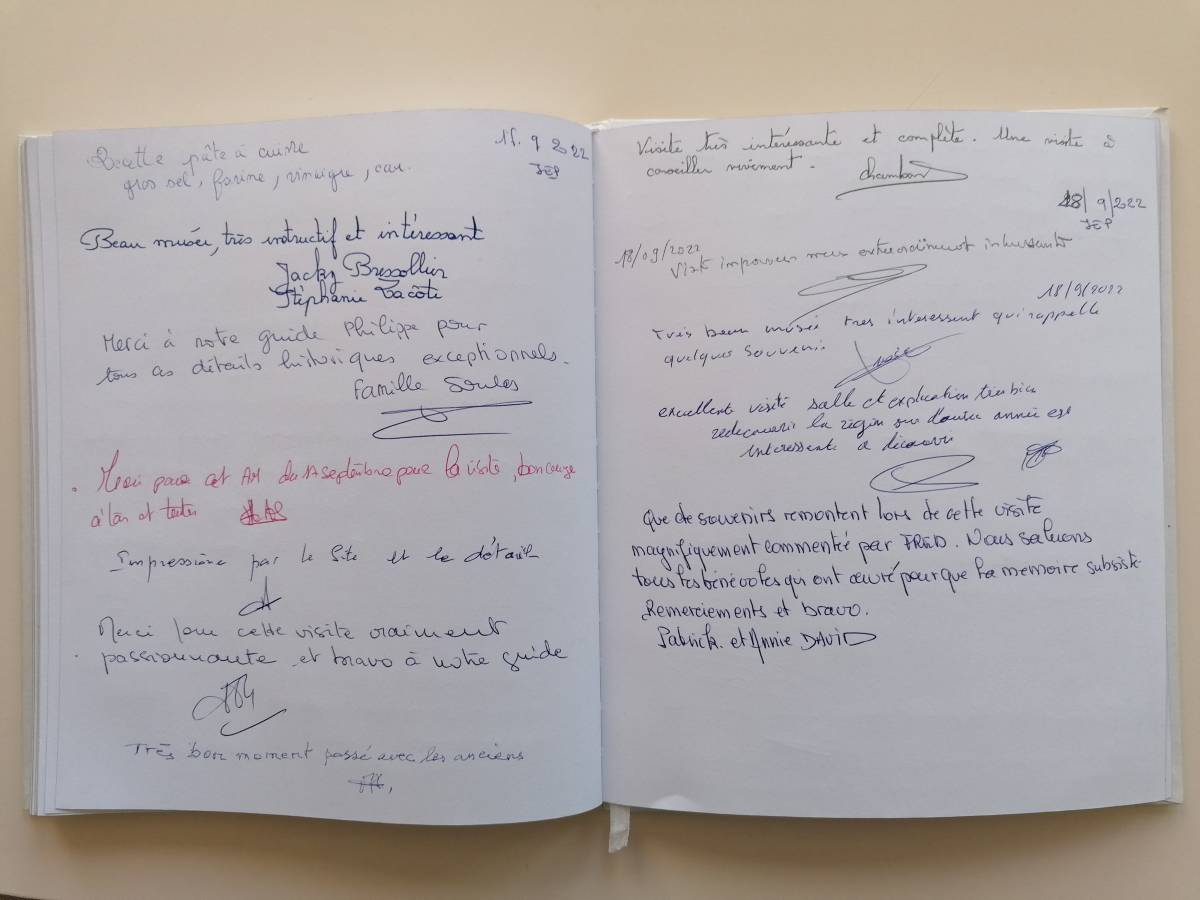 Recette pâte à cuivre
gros sel, farine, vinaigre, eau.
9 2022
JEP
Beau musée, très instructif et intéressant
Jacky Bressollin
Stéphanie Tacôte
Merci à notre guide Philippe pour
tous ces détails historiques exceptionnels.
Famille Soules
Merci pour cet AM du septembre pour la visite,
à tous et toutes
Impressionné par le site et le détail
Merci pour cette visite vraiment
passionnante et bravo à notre guide
Très bon moment passé avec les anciens
Visite très intéressante et complète. Une visite à
conseiller vivement.
Chambon
18/9/2022
JEP
18/09/2022
Visite mais extraordinairement intéressante
18/9/2022
Très beau musée très interessent qui rappelle
quelques souvenir.
excellente visite salle et explication très bien
redecouvrir la région sur année est
interessente a
Que de souvenirs remontent lors de cette visite
magnifiquement commentée par FRED. Nous saluons
tous les bénévoles qui ont œuvré pour que la memoire subsiste
Remerciements et bravo.
Patrick. et Annie DAVID